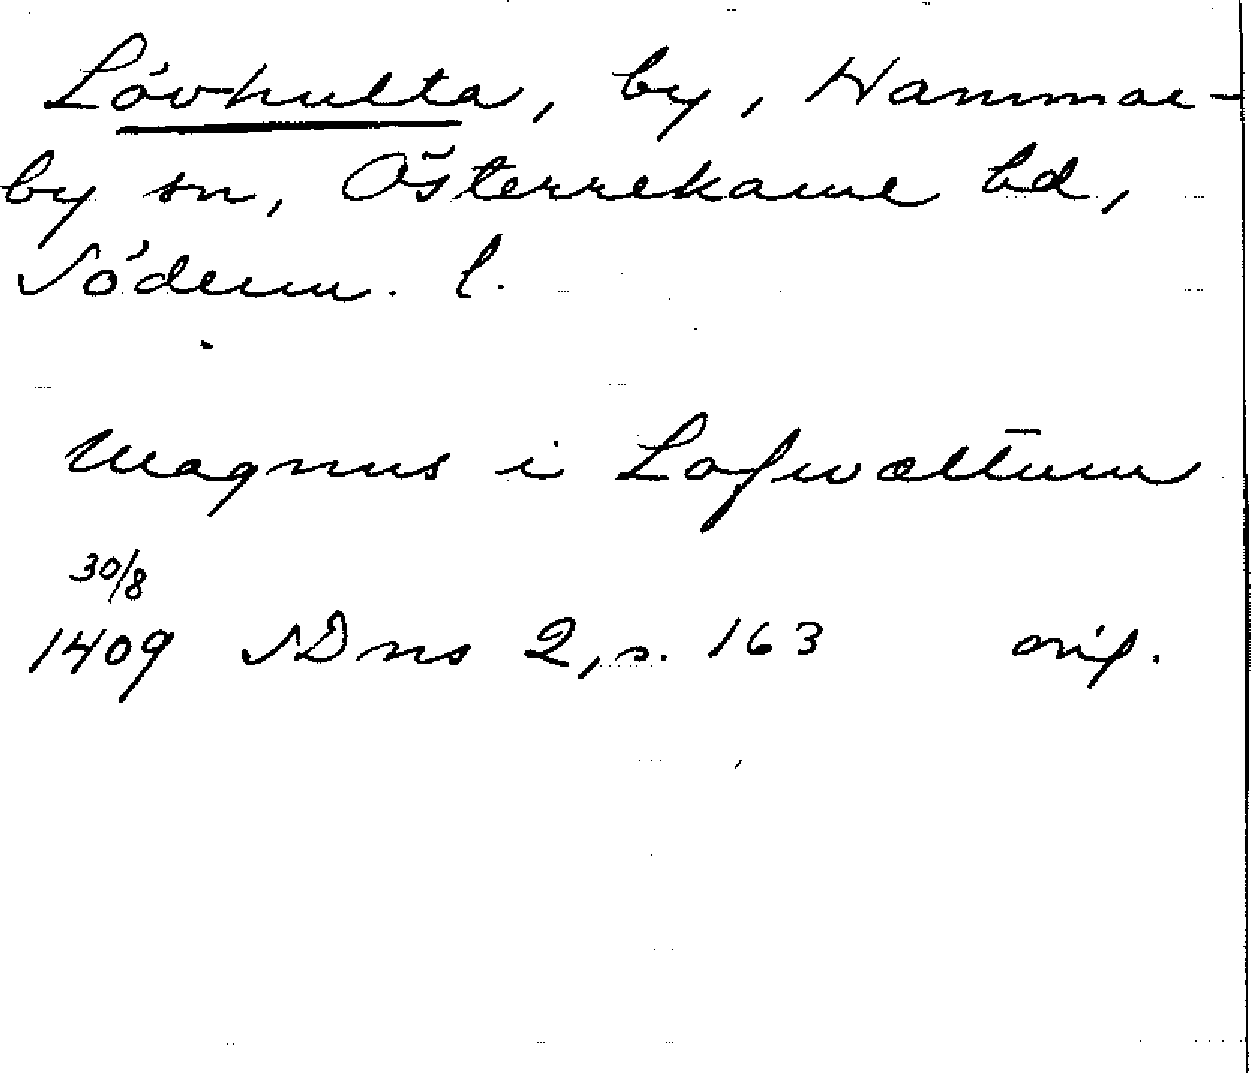 Lövhulta, by, Hammar-
by sn, Österrekarne hd,
Söderm. l.
Magnus i Lofwæltum
30/8
1409 SDns 2, s. 163 orig.